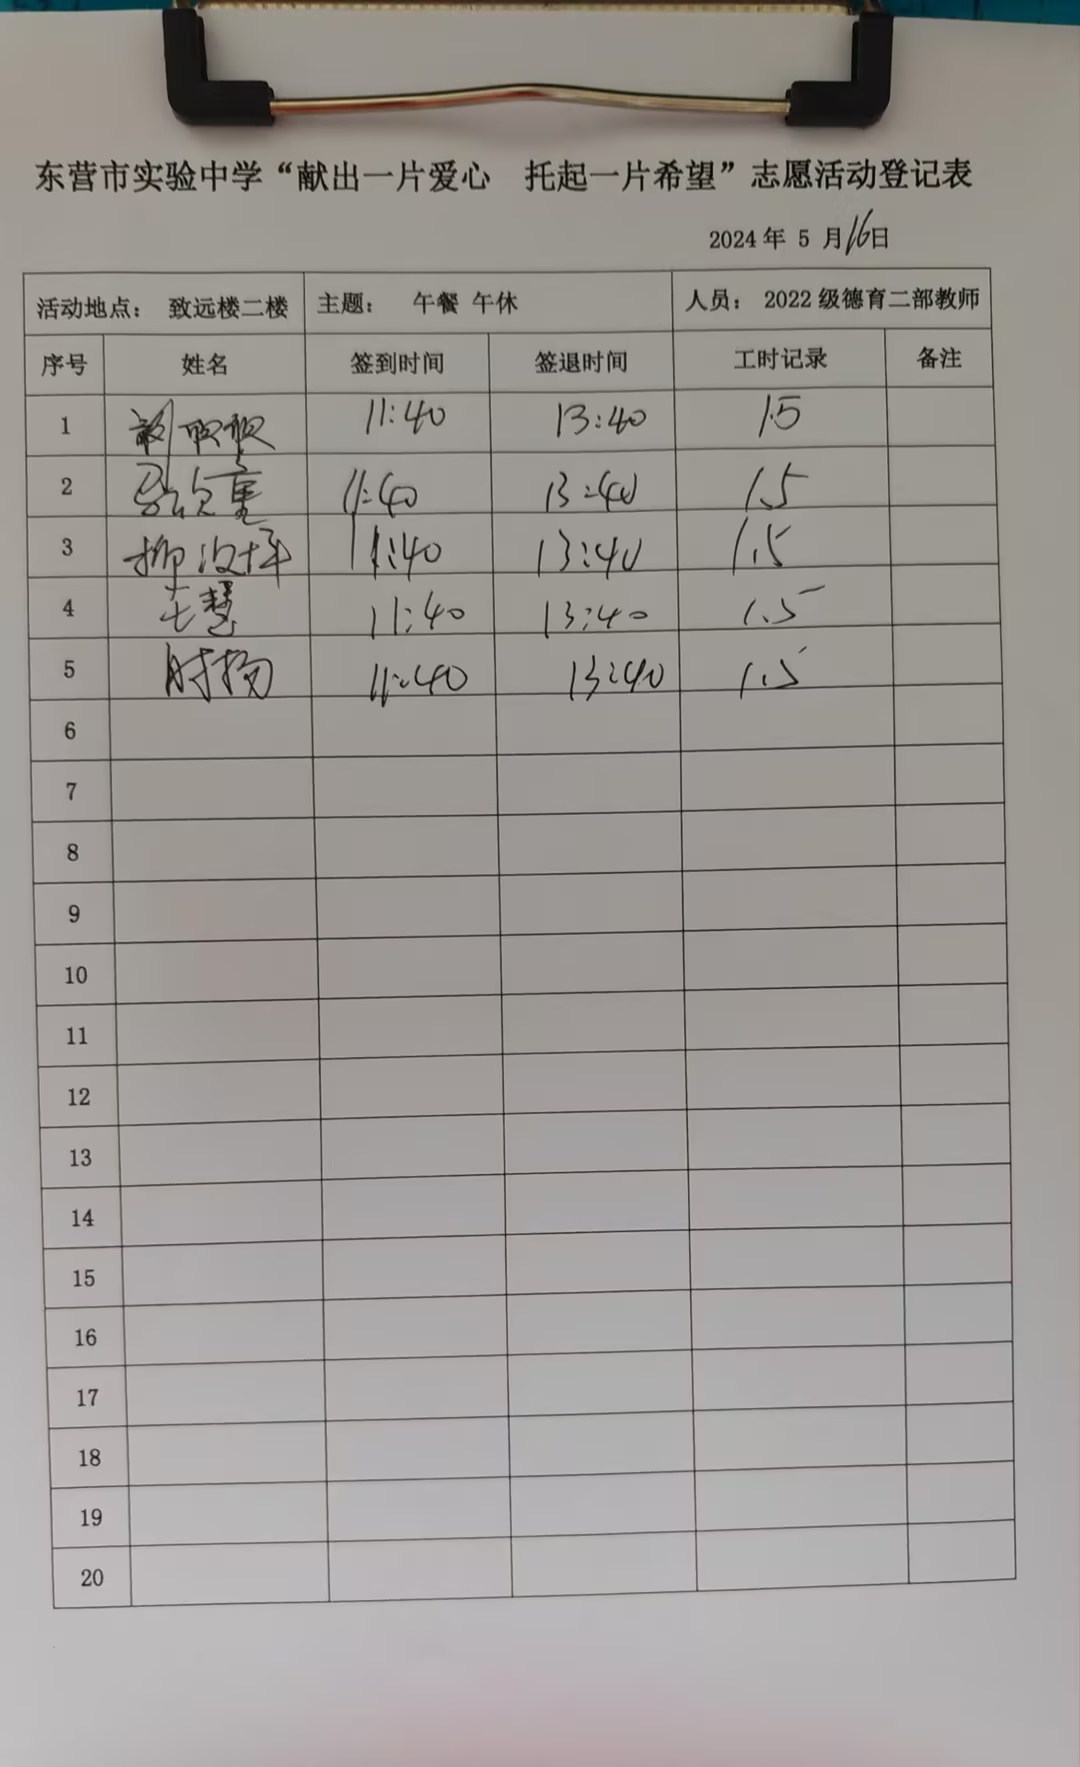 东营市实验中学“献出一片爱心 托起一片希望”志愿活动登记表
2024年 5 月16日
活动地点: 致远楼二楼 主题: 午餐 午休 人员: 2022级德育二部教师
序号 姓名 签到时间 签退时间 工时记录 备注
1 11:40 13:40 1.5
2 11:40 13:40 1.5
3 11:40 13:40 1.5
4 11:40 13:40 1.5
5 时扬 11:40 13:40 1.5
6
7
8
9
10
11
12
13
14
15
16
17
18
19
20